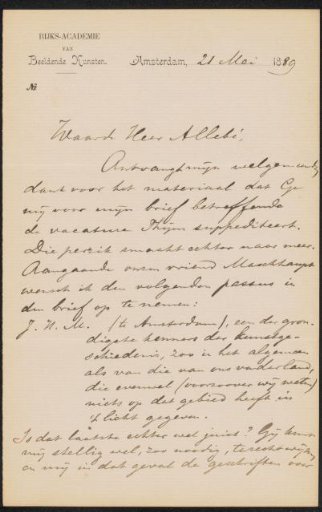 RIJKS-ACADEMIE
VAN
Beeldende Kunsten.
Amsterdam, 21 Mei 1889
No
Waarde Heer Allebé,
Ontvangt mijn welgemeenden
dank voor het materiaal dat Ge
mij voor mijn brief betreffende
de vacature Thijm suppediteert.
Die smaakt echter naar meer.
Aangaande onzen vriend
wensch ik den volgenden passus in
den brief op te nemen:
J. H. M. (te Amsterdam), een der gron-
digste kenners der kunstge-
schiedenis, zoo in het algemeen
als van die van ons vaderland,
die evenwel (voorzoover wij weten)
niets op dat gebied heeft in
't licht gegeven.
Is dat laatste echter wel juist? Gij kunt
mij stellig wel, zoo noodig, terechtwijzen
en mij in dat geval de geschriften